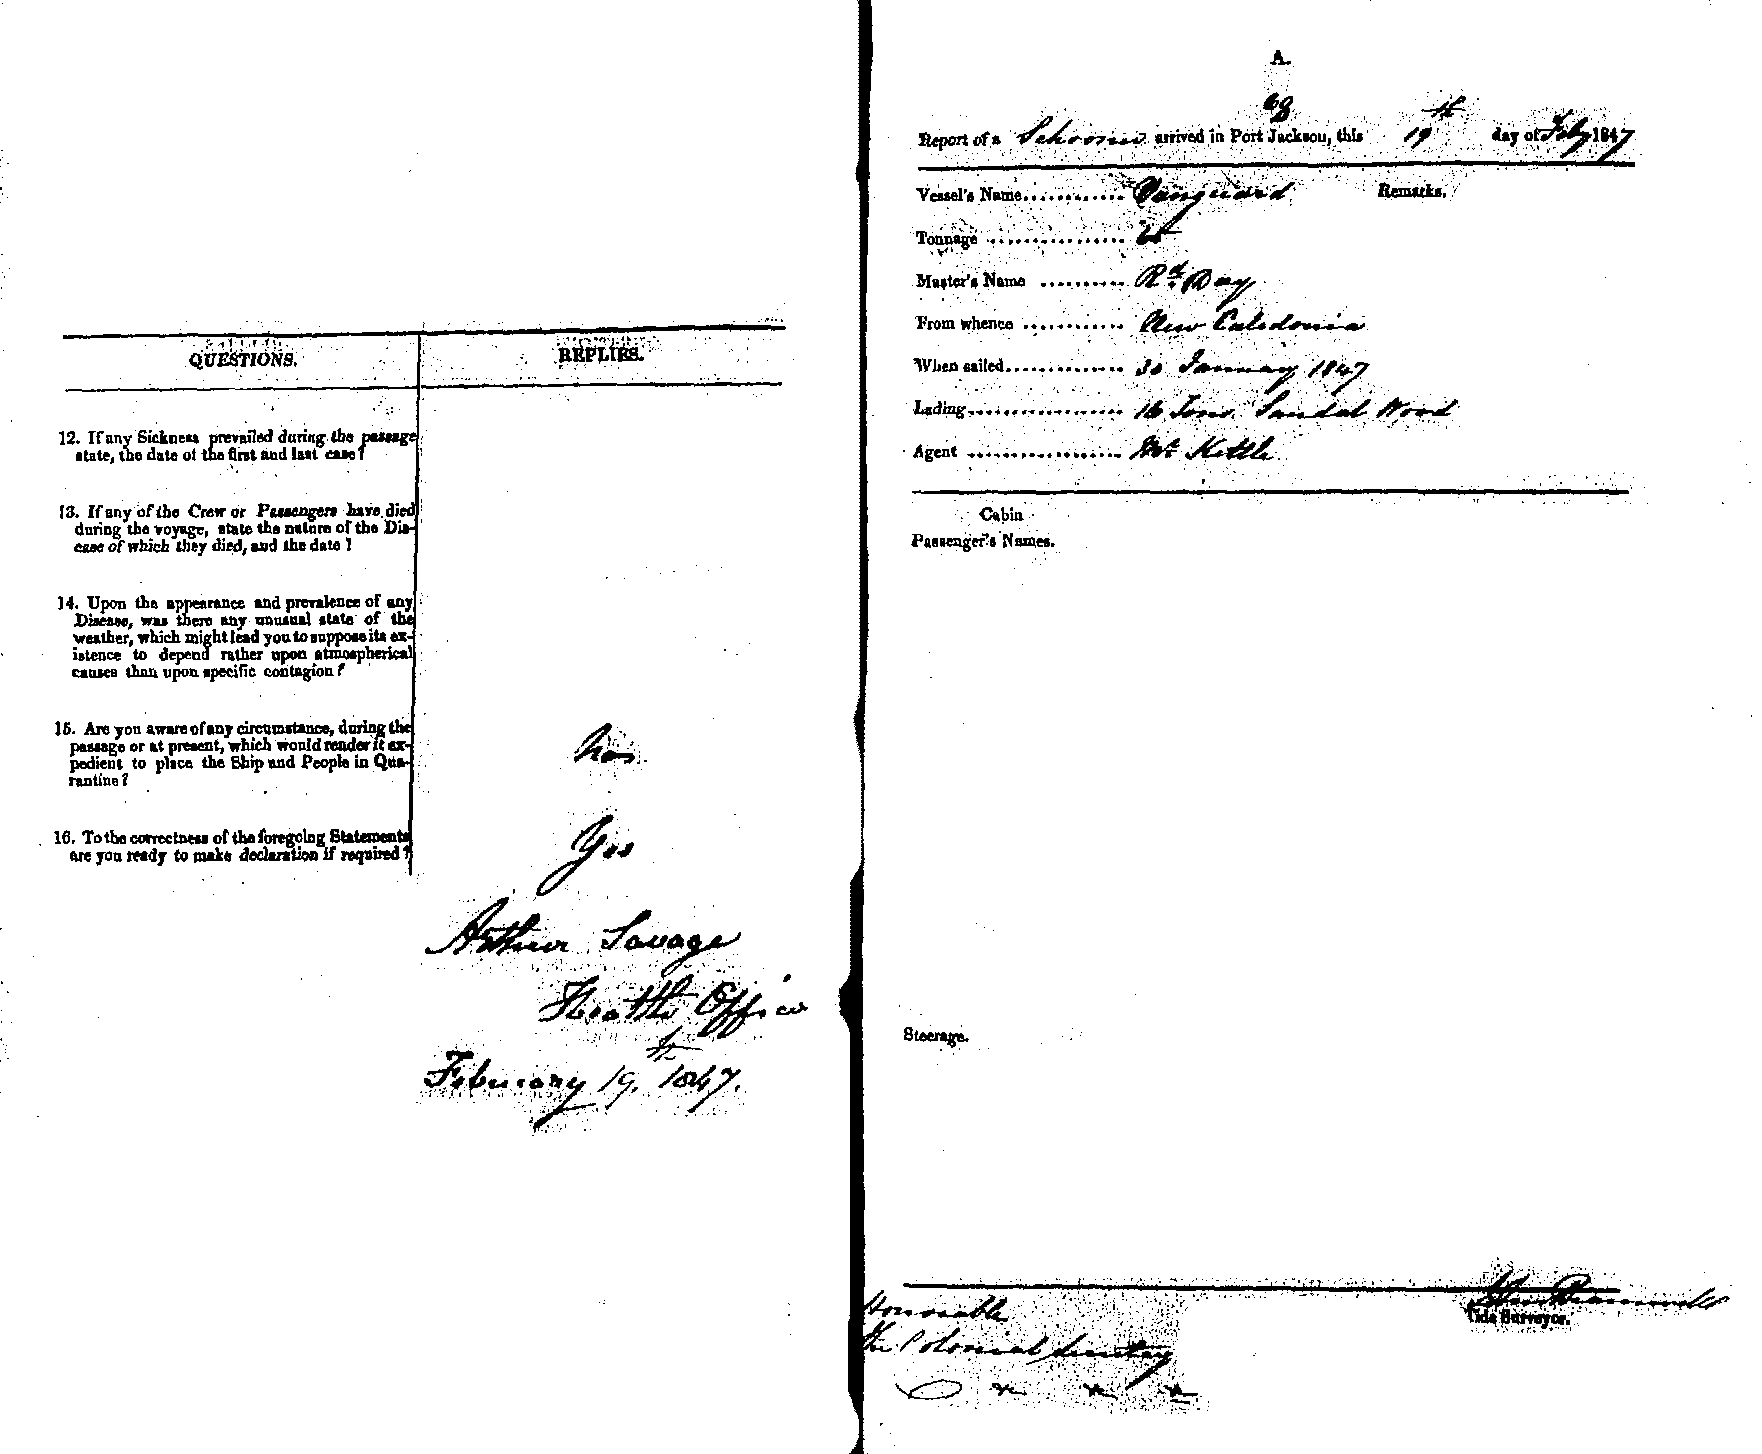 QUESTIONS.
REPLIES.
12. If any Sickness prevailed during the passage
state, the date of the first and last case?
13. If any of the Crew or Passengers have died
during the voyage, state the nature of the Dis-
ease of which they died, and the date?
14. Upon the appearance and prevalence of any
Disease, was there any unusual state of the
weather, which might lead you to suppose its ex-
istence to depend rather upon atmospherical
causes than upon specific contagion?
15. Are you aware of any circumstance, during the
passage or at present, which would render it ex-
pedient to place the Ship and People in Qua-
rantine?
16. To the correctness of the foregoing Statements
are you ready to make declaration if required?
Yes
Arthur Savage
Health Officer
February 19th 1847.
A.
68
Report of a Schooner arrived in Port Jackson, this 19th day of Feby 1847
Vessel's Name............ Vanguard Remarks.
Tonnage ................
Master's Name .......... Rd. Day
From whence ............ New Caledonia
When sailed.............. 30 January 1847
Lading................... 16 Tons Sandal Wood
Agent ................... Kettle
Cabin
Passenger's Names.
Steerage.
Tide Surveyor.
Honorable
the Colonial Secretary